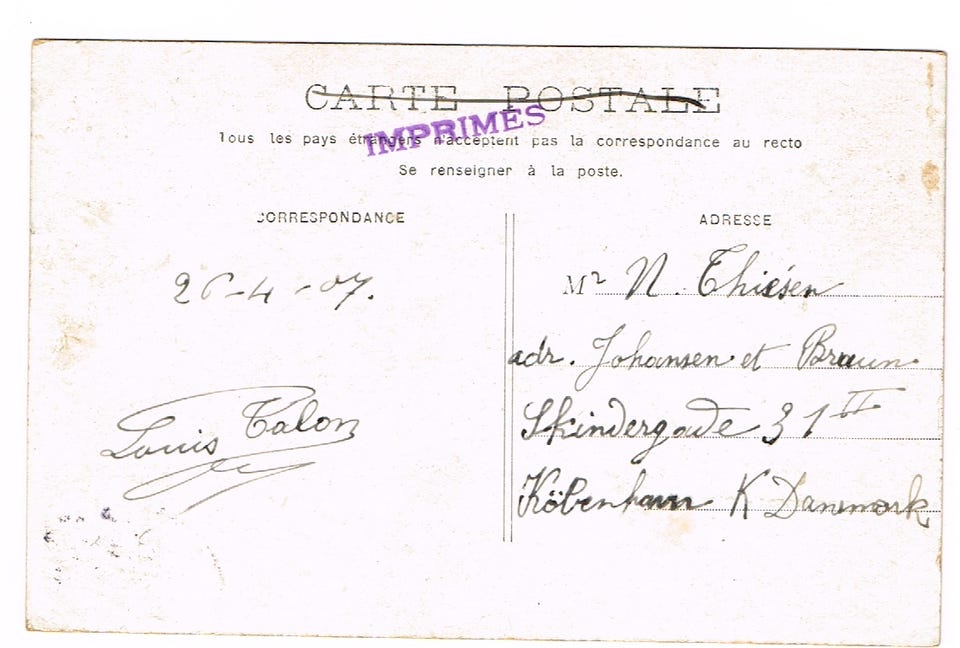 CARTE POSTALE
IMPRIMÉS
Tous les pays étrangers n'acceptent pas la correspondance au recto
Se renseigner à la poste.
CORRESPONDANCE
26-4-07.
Louis Talon
ADRESSE
Mr N. Thiésen
adr. Johansen et Braun
Skindergade 31 II
Köbenhavn K Danmark